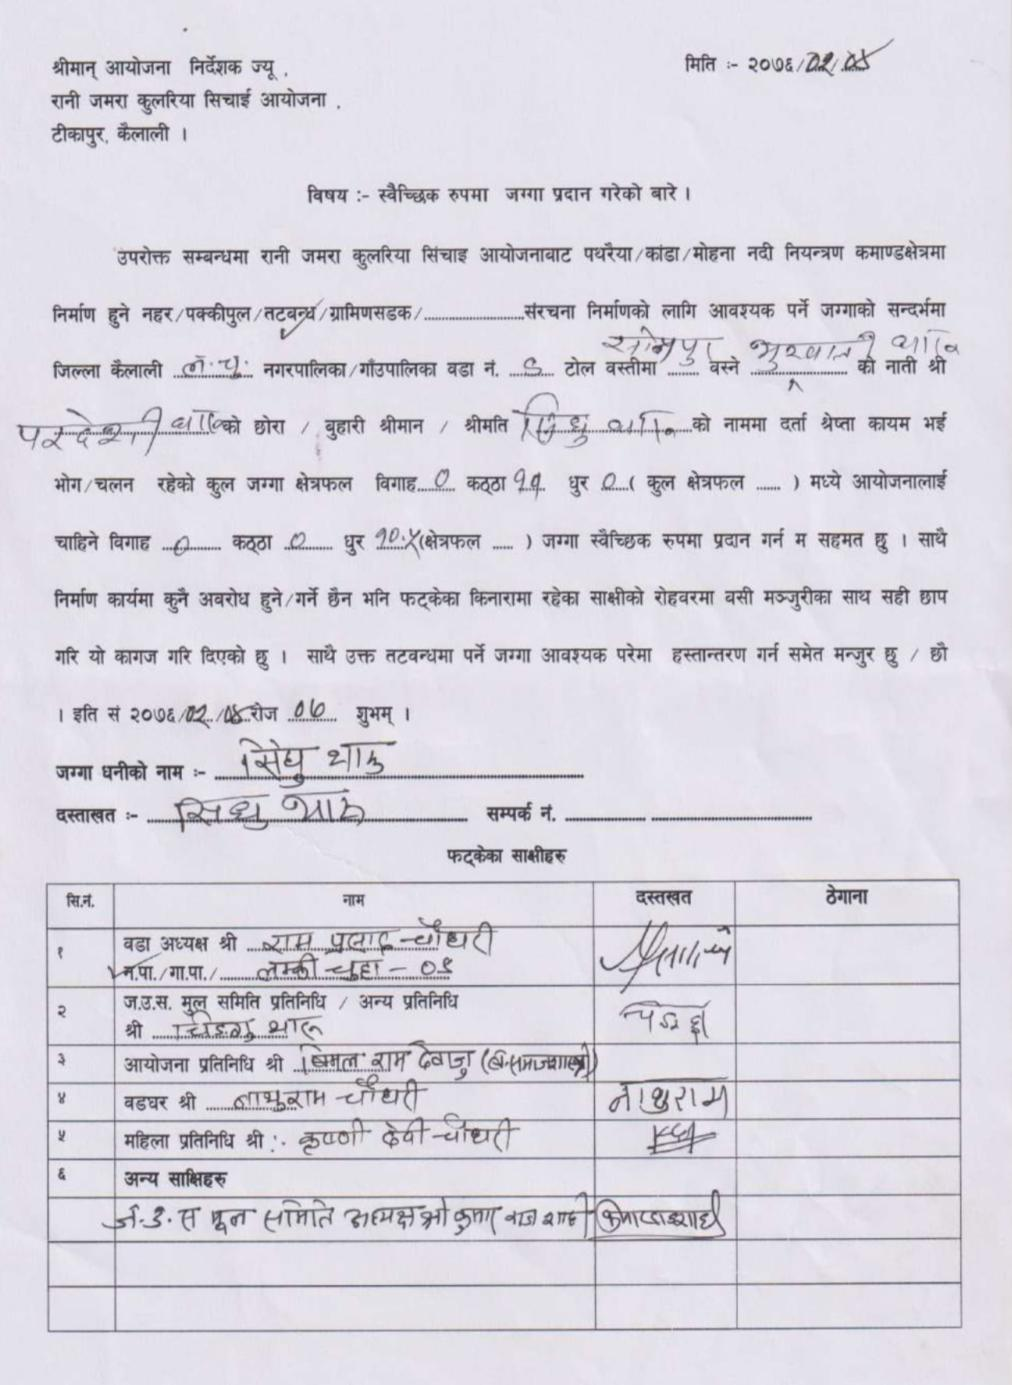 श्रीमान् आयोजना निर्देशक ज्यू ,
मिति :- २०७६/02/05
रानी जमरा कुलरिया सिचाई आयोजना .
टीकापुर, कैलाली ।
विषय :- स्वैच्छिक रुपमा जग्गा प्रदान गरेको बारे ।
उपरोक्त सम्बन्धमा रानी जमरा कुलरिया सिंचाइ आयोजनाबाट पथरैया/कांडा/मोहना नदी नियन्त्रण कमाण्डक्षेत्रमा
निर्माण हुने नहर/पक्कीपुल/तटबन्ध/ग्रामिणसडक/......................संरचना निर्माणको लागि आवश्यक पर्ने जग्गाको सन्दर्भमा
जिल्ला कैलाली ल.चु. नगरपालिका/गाँउपालिका वडा नं. ९ टोल वस्तीमा वस्ने को नाती श्री
परदेशी को छोरा / बुहारी श्रीमान / श्रीमति को नाममा दर्ता श्रेष्ता कायम भई
भोग/चलन रहेको कुल जग्गा क्षेत्रफल विगाह 0 कठ्ठा धुर 0 ( कुल क्षेत्रफल ...... ) मध्ये आयोजनालाई
चाहिने विगाह 0 कठ्ठा 0 धुर १0.५ (क्षेत्रफल ..... ) जग्गा स्वैच्छिक रुपमा प्रदान गर्न म सहमत छु । साथै
निर्माण कार्यमा कुनै अवरोध हुने/गर्ने छैन भनि फट्केका किनारामा रहेका साक्षीको रोहवरमा वसी मञ्जुरीका साथ सही छाप
गरि यो कागज गरि दिएको छु । साथै उक्त तटवन्धमा पर्ने जग्गा आवश्यक परेमा हस्तान्तरण गर्न समेत मन्जुर छु / छौ
। इति सं २०७६/02/05 रोज 06 शुभम् ।
जग्गा धनीको नाम :- सिधु थारु
दस्ताखत :- सिधु थारु सम्पर्क नं. ...............
फट्केका साक्षीहरु
सि.नं. नाम दस्तखत ठेगाना
१ वडा अध्यक्ष श्री राम प्रसाद चौधरी
न.पा./गा.पा./ लम्की चुहा - ०९
२ ज.उ.स. मुल समिति प्रतिनिधि / अन्य प्रतिनिधि
श्री थारु
३ आयोजना प्रतिनिधि श्री बिमल राम देवाजु
४ वडघर श्री नाथुराम चौधरी नाथुराम
५ महिला प्रतिनिधि श्री :. कृष्णी देवी चौधरी
६ अन्य साक्षिहरु
ज.उ.स मूल समिति अध्यक्ष श्री